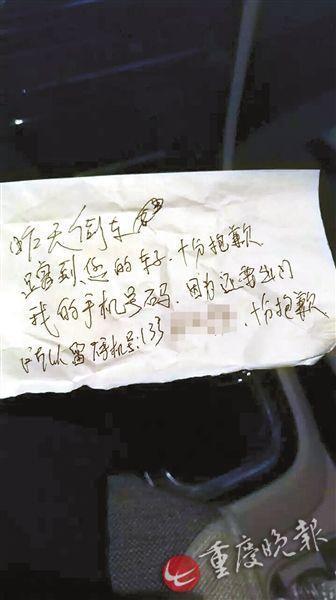 昨天倒车
到您的车子,十分抱歉
我的手机号码,因为还要出门
所以留手机号133 ,十分抱歉
重庆晚报